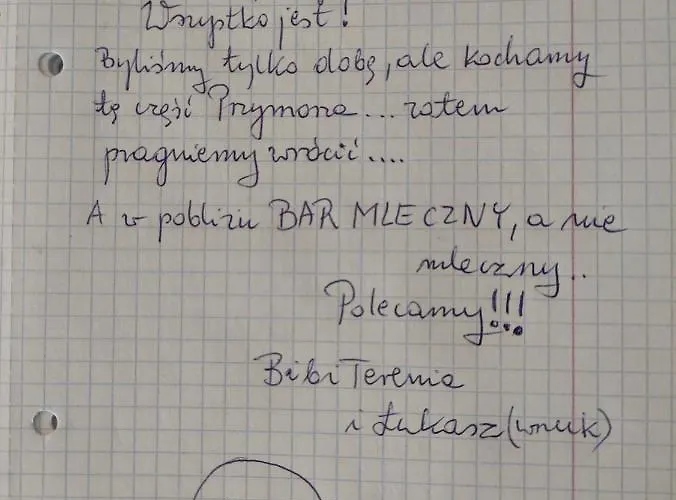 Wszystko jest!
Byliśmy tylko dobę, ale kochamy
tę część Przymorza... zatem
pragniemy wrócić....
A w pobliżu BAR MLECZNY, a nie
mleczny..
Polecamy!!!
Bibi Terenia
i Łukasz (wnuk)